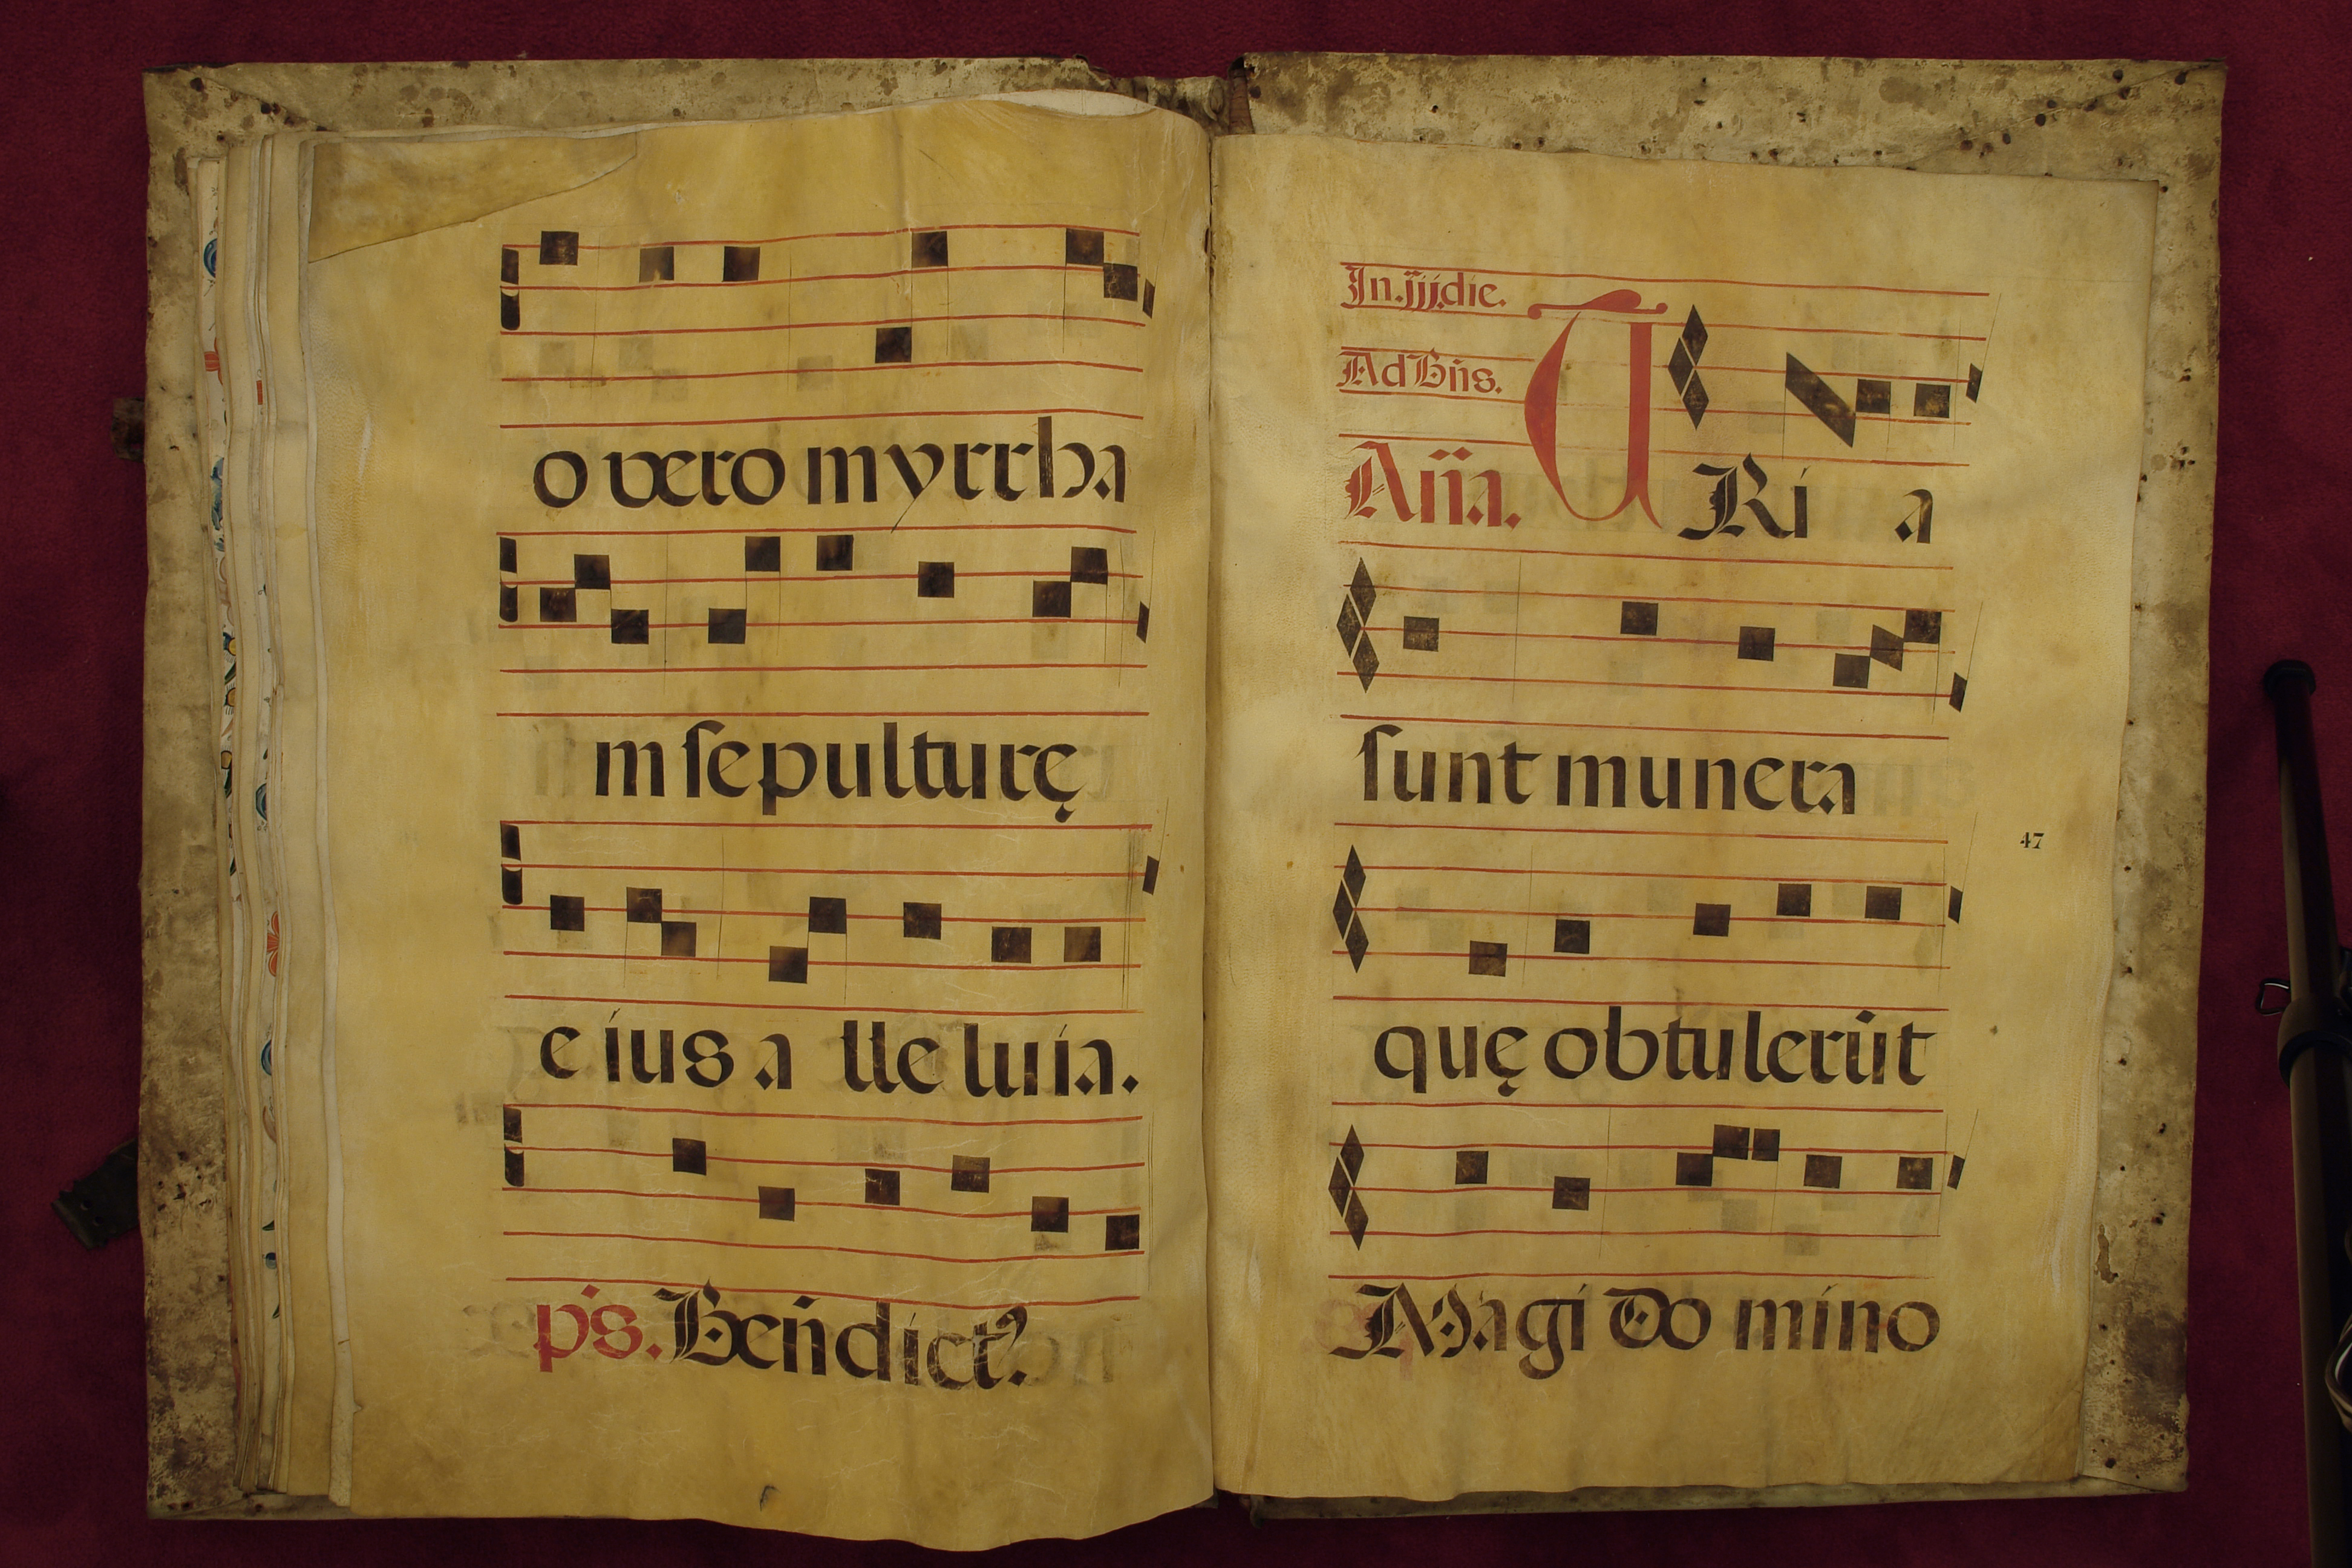 o vero myrrha
m sepulturę
e ius a lle luia.
p̃s. Beñdict9.
In.iij.die.
Ad Bñs.
Añа. TRi a
sunt munera
quę obtulerūt
47
Magi Do mino